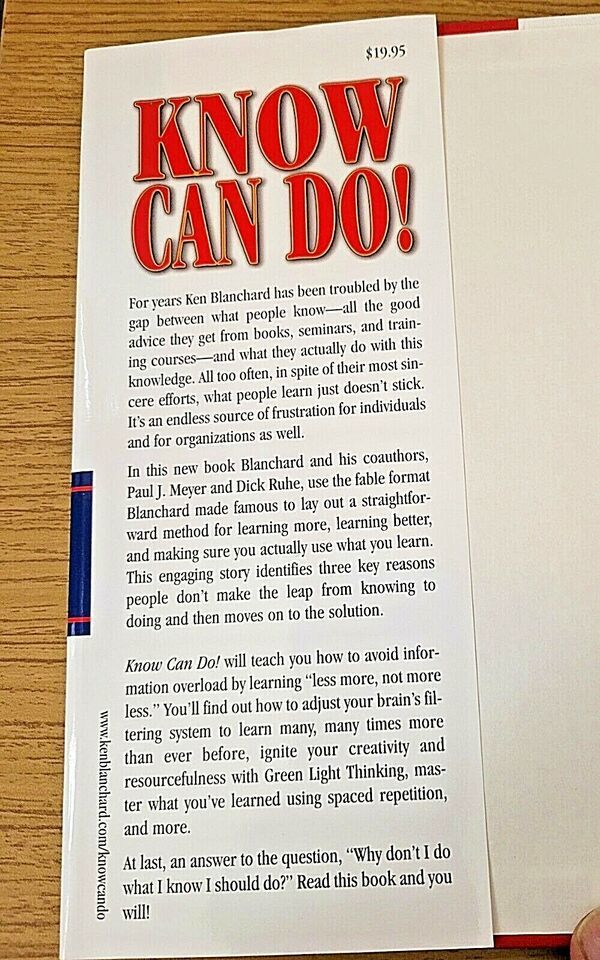 $19.95
KNOW
CAN DO!
For years Ken Blanchard has been troubled by the
gap between what people know—all the good
advice they get from books, seminars, and train-
ing courses—and what they actually do with this
knowledge. All too often, in spite of their most sin-
cere efforts, what people learn just doesn't stick.
It's an endless source of frustration for individuals
and for organizations as well.
In this new book Blanchard and his coauthors,
Paul J. Meyer and Dick Ruhe, use the fable format
Blanchard made famous to lay out a straightfor-
ward method for learning more, learning better,
and making sure you actually use what you learn.
This engaging story identifies three key reasons
people don't make the leap from knowing to
doing and then moves on to the solution.
Know Can Do! will teach you how to avoid infor-
mation overload by learning "less more, not more
less." You'll find out how to adjust your brain's fil-
tering system to learn many, many times more
than ever before, ignite your creativity and
resourcefulness with Green Light Thinking, mas-
ter what you've learned using spaced repetition,
and more.
At last, an answer to the question, "Why don't I do
what I know I should do?" Read this book and you
will!
www.kenblanchard.com/knowcando